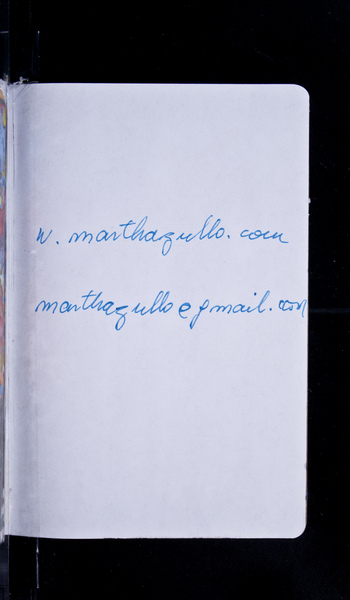 w. marthazullo.com
marthazullo@gmail.com